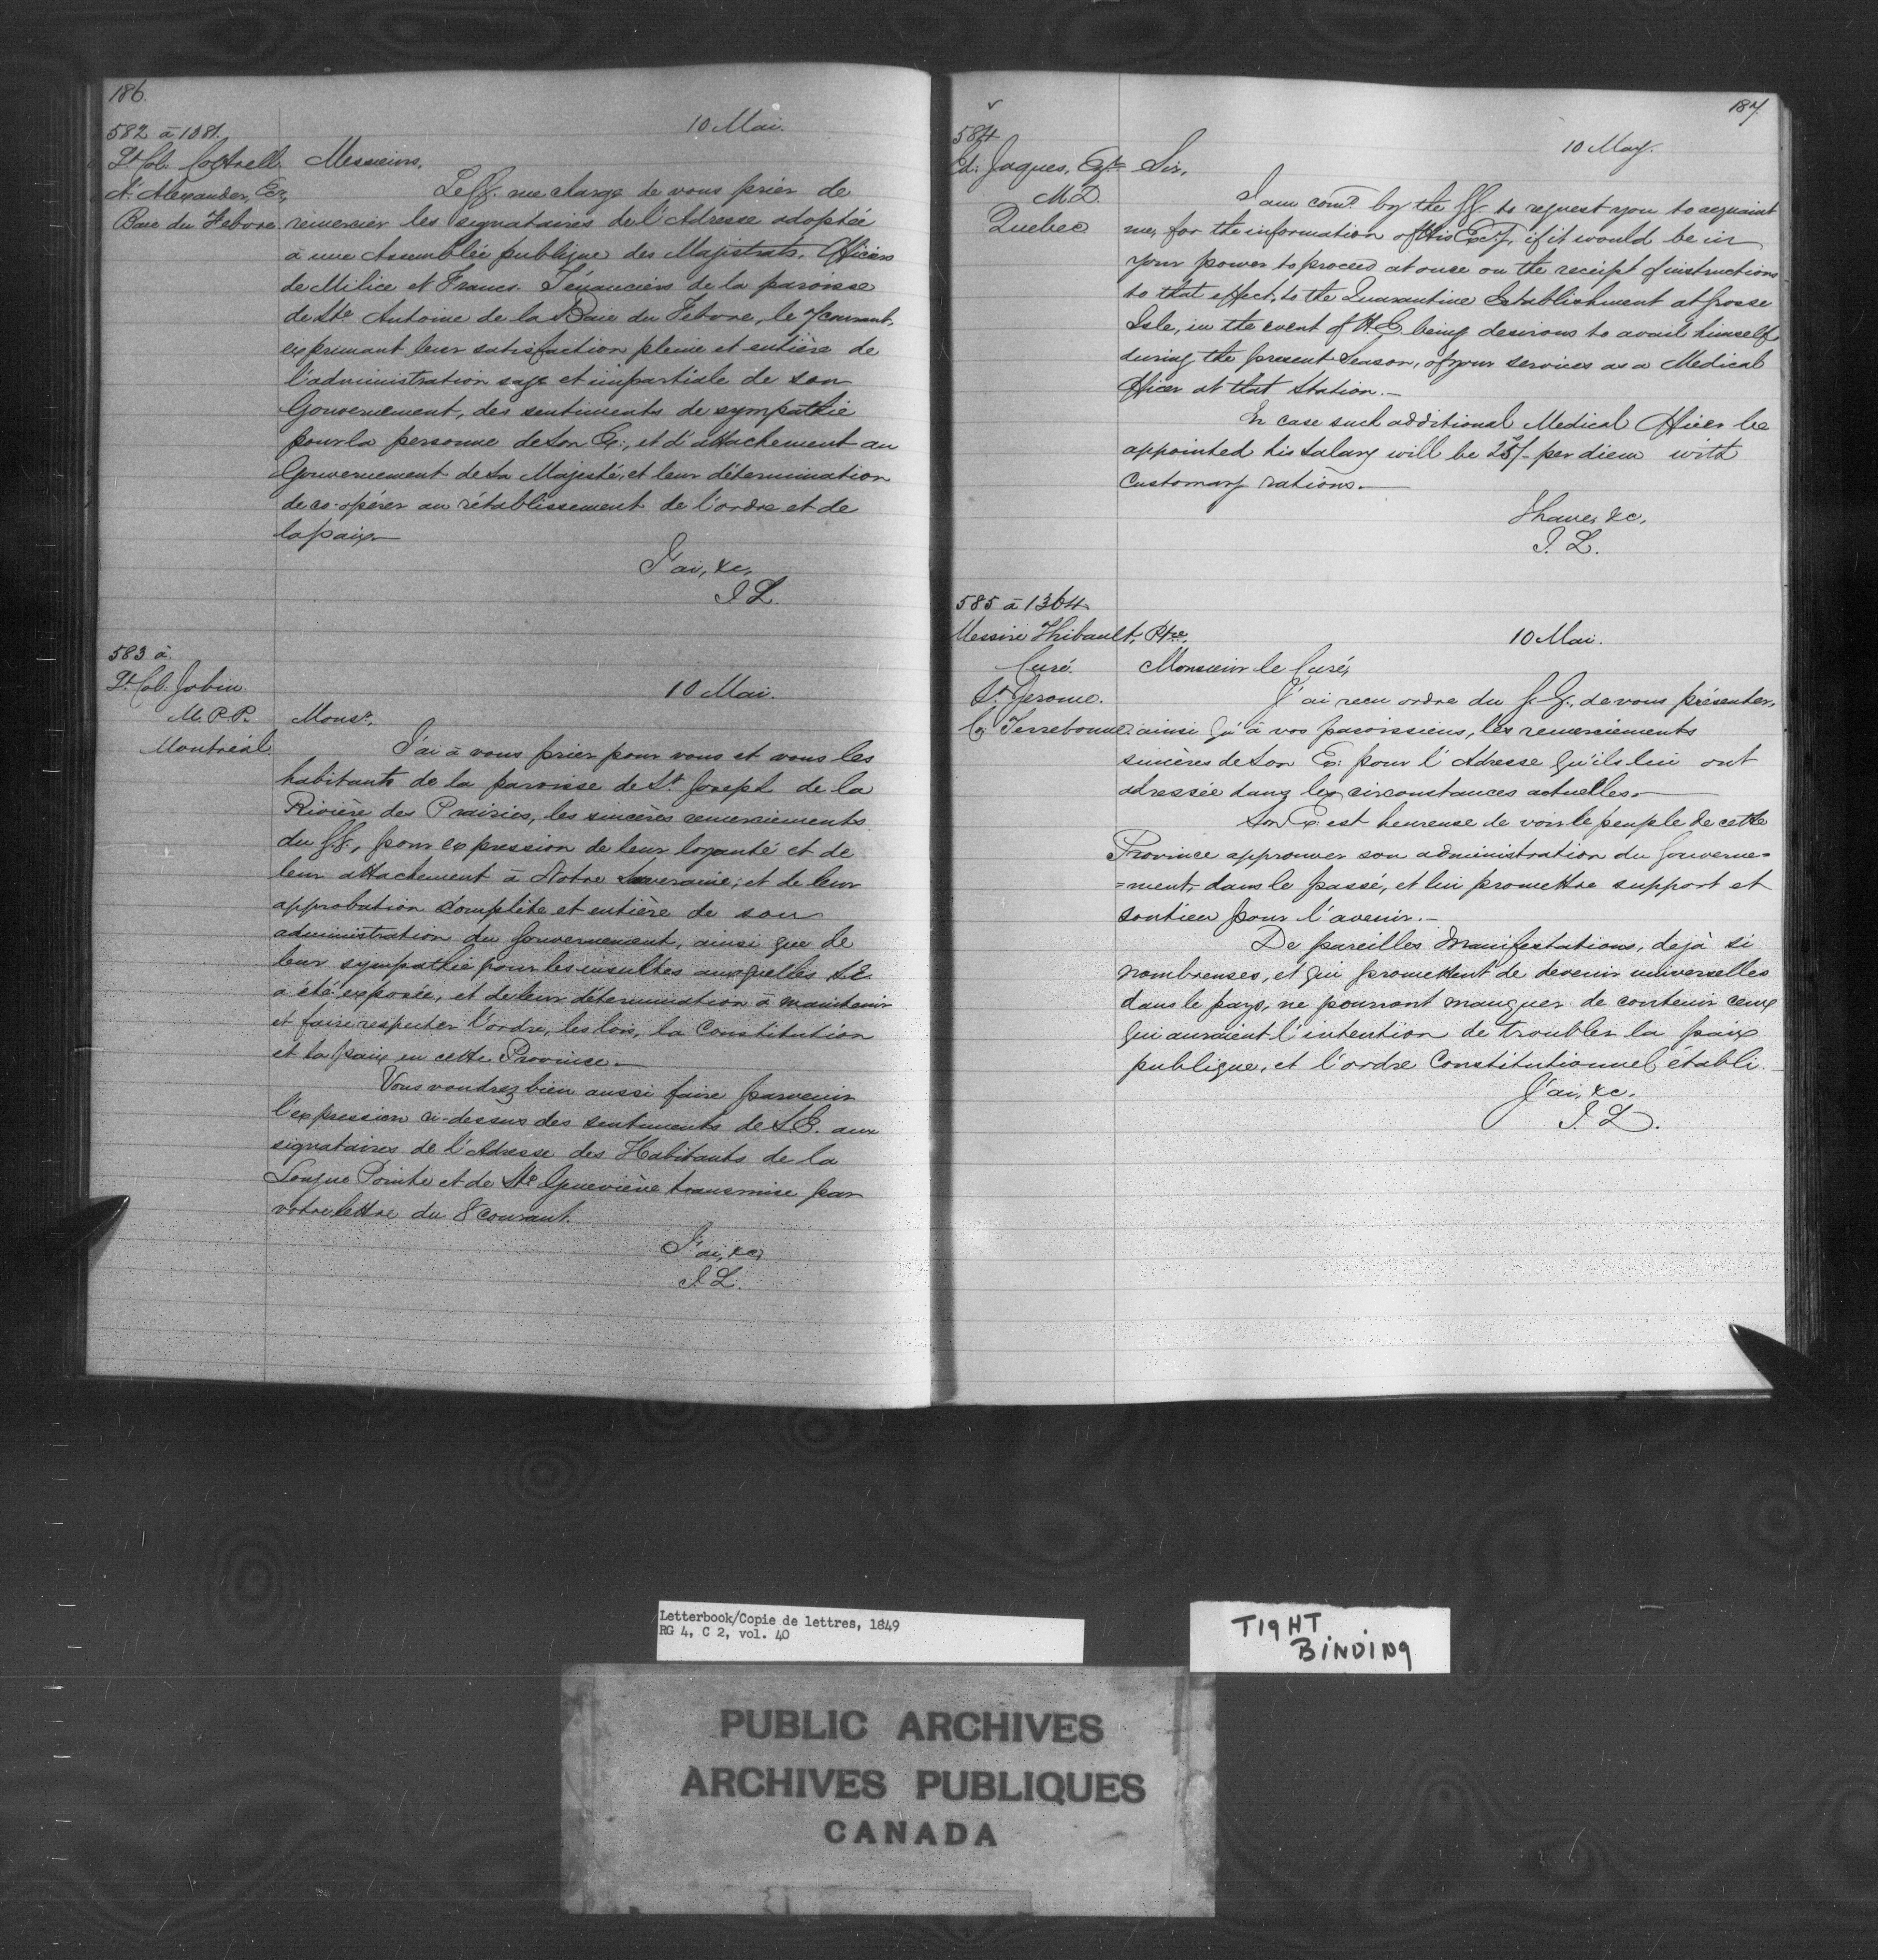 186.
582 à 1381.
10 Mai.
Lt Col. Cottrell
A. Alexander, Ecr,
Baie du Febvre
Messieurs,
Le G.G. me charge de vous prier de
remercier les signataires de l'Adresse adoptée
à une Assemblée publique des Majistrats, Officiers
de Milice et Francs-Ténanciers de la paroisse
de Ste Antoine de la Baie du Febvre, le 7 courant,
exprimant leur satisfaction pleine et entière de
l'administration sage et impartiale de son
Gouvernement, des sentiments de sympathie
pour la personne de Son Ex:, et d'attachement au
Gouvernement de Sa Majesté, et leur détermination
de co-opérer au rétablissement de l'ordre et de
la paix—
J'ai, &c,
J. L.
583 à
Lt Col. Jobin
M.P.P.
Montréal
10 Mai.
Monsr,
J'ai à vous prier pour vous et vous les
habitants de la paroisse de St Joseph de la
Rivière des Prairies, les sincères remerciements
du G.G., pour expression de leur loyauté et de
leur attachement à Notre Souveraine; et de leur
approbation complète et entière de son
administration du Gouvernement, ainsi que de
leur sympathie pour les insultes auxquelles S.E.
a été exposée, et de leur détermination à maintenir
et faire respecter l'ordre, les lois, la Constitution
et la paix en cette Province—
Vous voudrez bien aussi faire parvenir
l'expression ci-dessus des sentiments de S.E. aux
signataires de l'Adresse des Habitants de la
Longue Pointe et de Ste Geneviève transmise par
votre lettre du 8 courant.
J'ai, &c,
J. L.
187.
584
10 May.
Ed: Jaques, Eqr
M.D.
Quebec
Sir,
I am comd by the G.G. to request you to acquaint
me, for the information of His Excy, if it would be in
your power to proceed at once on the receipt of instructions
to that effect, to the Quarantine Establishment at Grosse
Isle, in the event of H.E. being desirous to avail himself,
during the present Season, of your services as a Medical
Officer at that Station.—
In case such additional Medical Officer be
appointed his Salary will be 25/- per diem with
Customary rations.—
I have, &c,
J. L.
585 à 1364
Messire Thibault, Ptre,
Curé.
St Jerome.
Co. Terrebonne
10 Mai.
Monsieur le Curé,
J'ai recu ordre du G.G., de vous présenter,
ainsi qu'à vos paroissiens, les remerciements
sincères de Son Ex: pour l'Adresse qu'ils lui ont
adressée dans les circonstances actuelles.—
Son Ex: est heureuse de voir le peuple de cette
Province approuver son administration du Gouverne=
=ment, dans le passé, et lui promettre support et
soutien pour l'avenir.—
De pareilles Manifestations, dejà si
nombreuses, et qui promettent de devenir universelles
dans le pays, ne pourront manquer de contenir ceux
qui auraient l'intention de troubler la paix
publique, et l'ordre Constitutionnel établi.—
J'ai, &c.
J. L.
Letterbook/Copie de lettres, 1849
RG 4, C 2, vol. 40
TIGHT
BINDING
PUBLIC ARCHIVES
ARCHIVES PUBLIQUES
CANADA